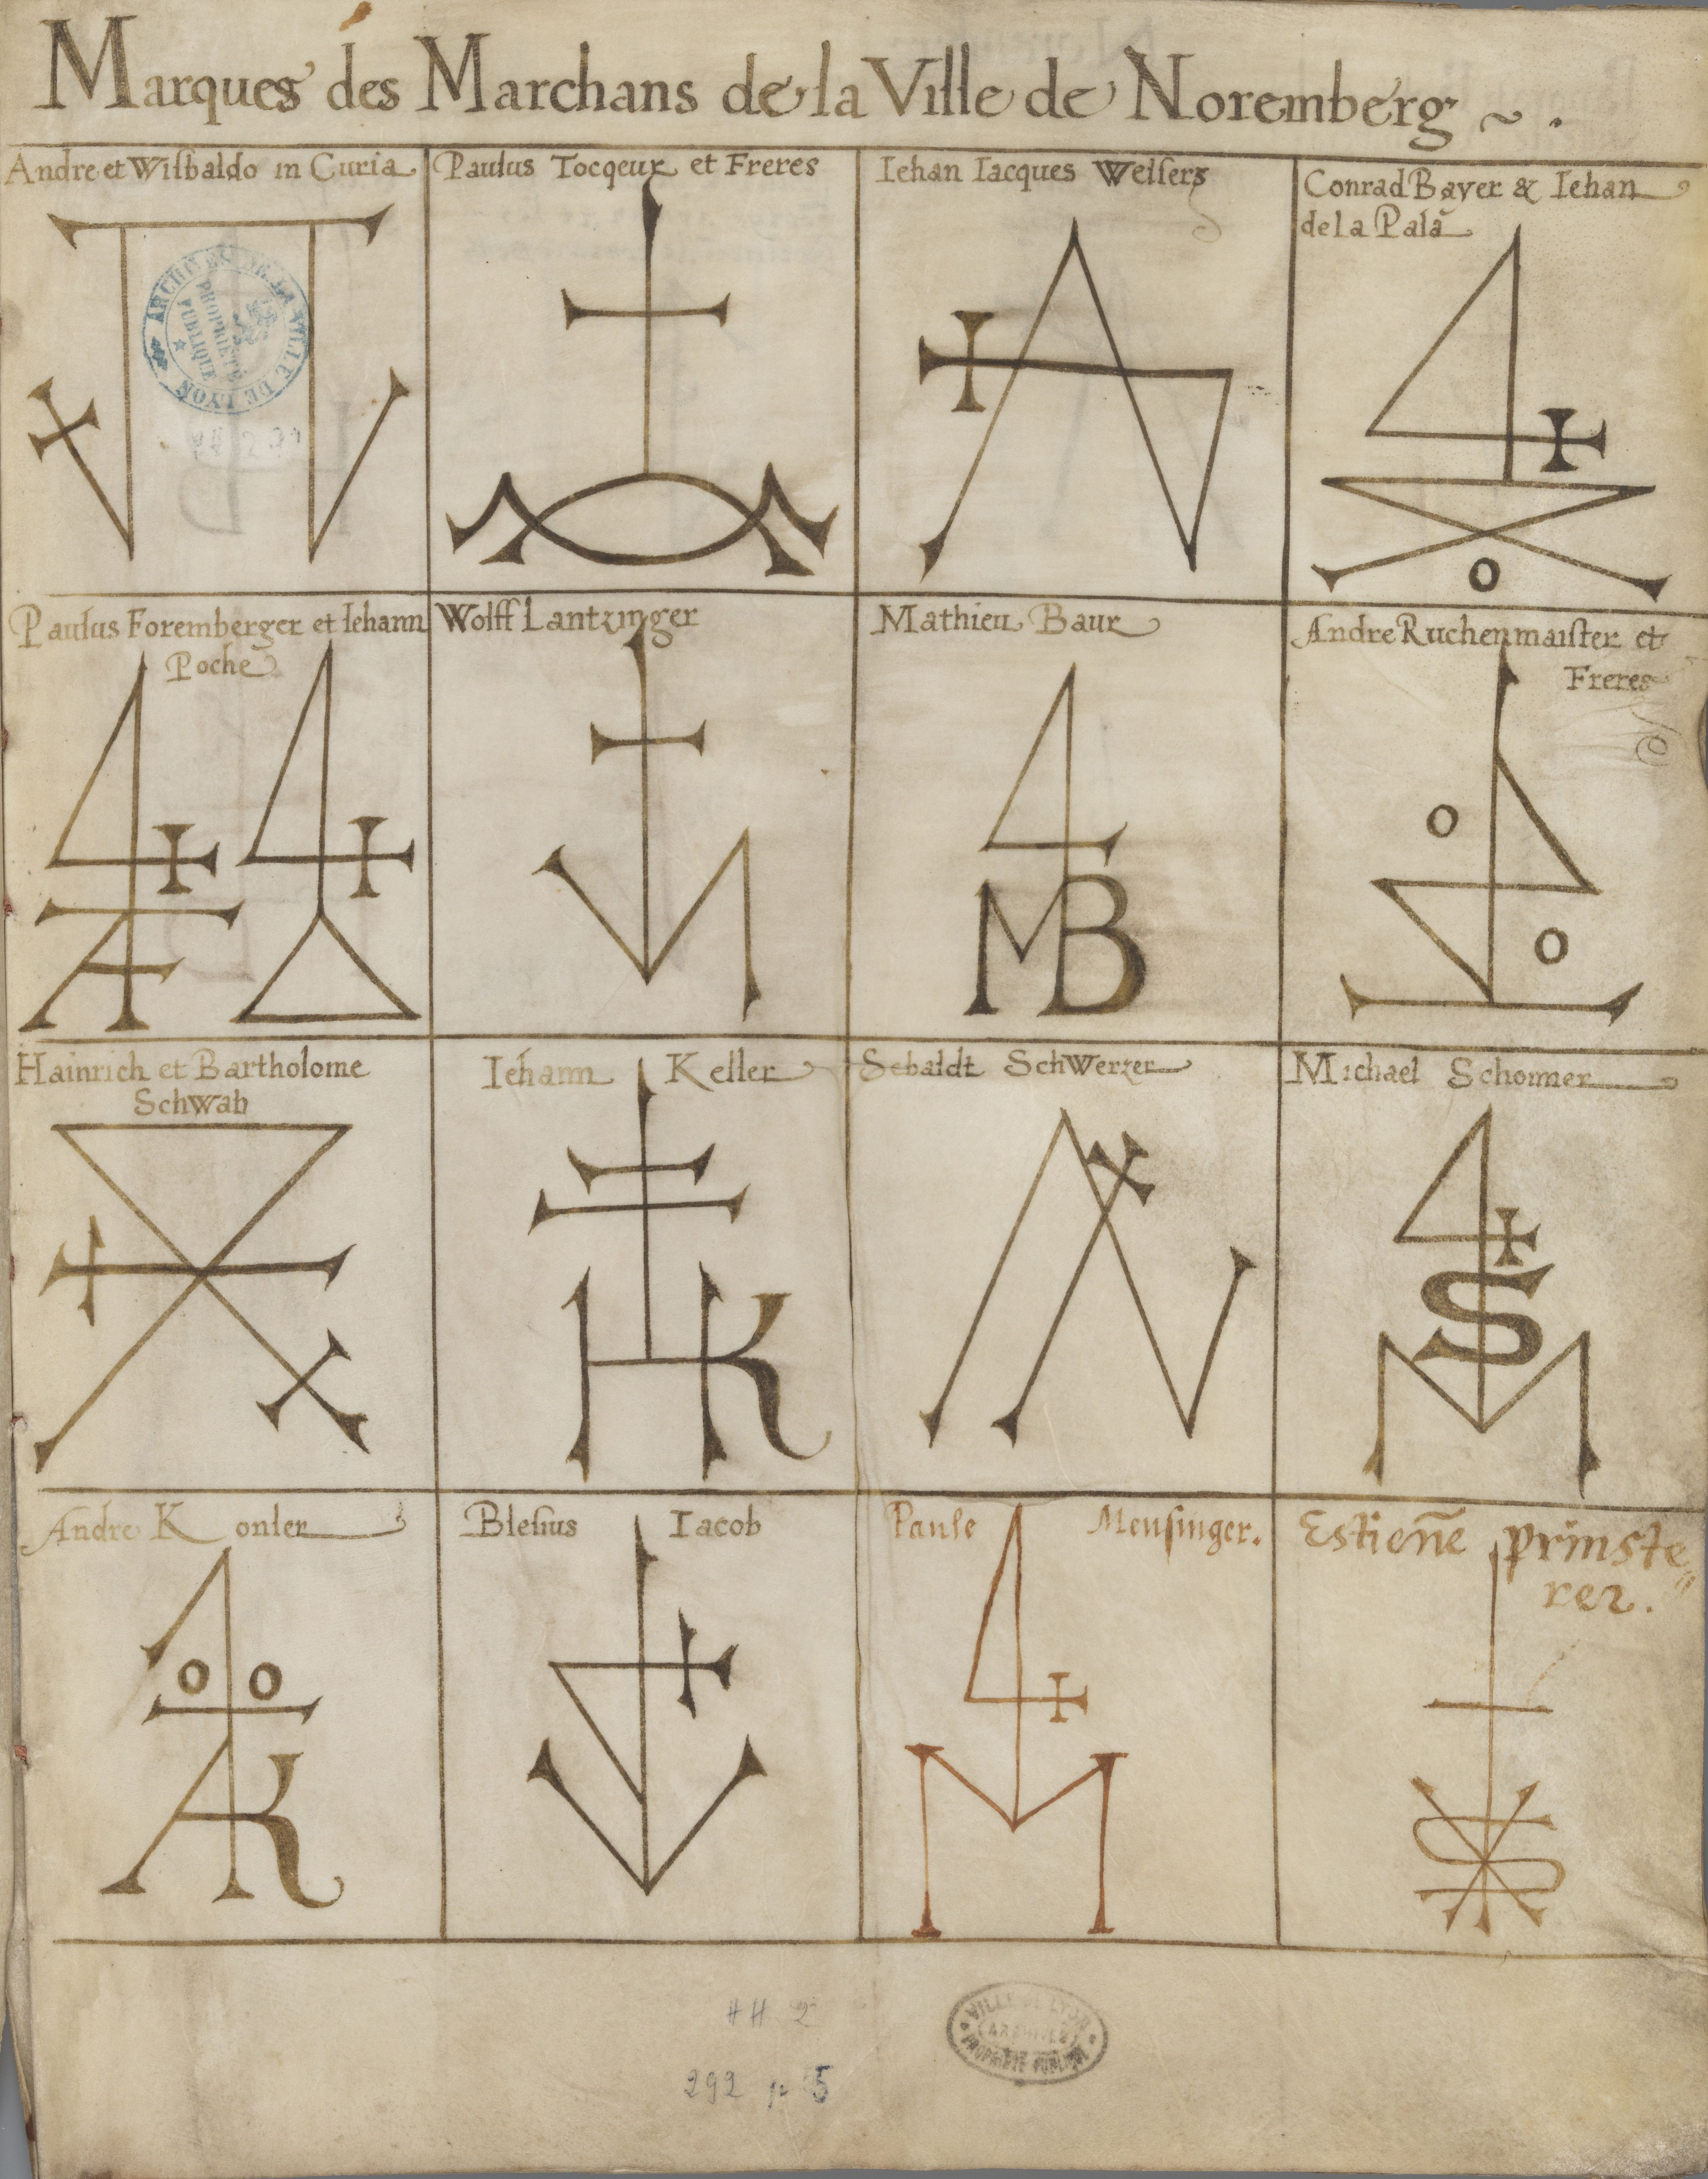 Marques des Marchans de la Ville de Noremberg ~ .
Andre et Wilbaldo in Curia
Paulus Tocqeur et Freres
Iehan Iacques Welsers
Conrad Bayer & Iehan
de la Pala
ARCHIVES DE LA VILLE DE LYON
PROPRIÉTÉ
PUBLIQUE
o
Paulus Foremberger et Iehann
Poche
Wolff Lantzinger
Mathieu Baur
Andre Ruchenmaister et
Freres
A
MB
o
o
Hainrich et Bartholome
Schwab
Iehann Keller
Sebaldt SchWerzer
Michael Schomer
HK
S
M
Andre Konler
Blesius Iacob
Paule Mensinger.
Estieñe prinste
rer.
o o
AK
M
S
HH 2
VILLE DE LYON
ARCHIVES
PROPRIÉTÉ PUBLIQUE
292 p 5